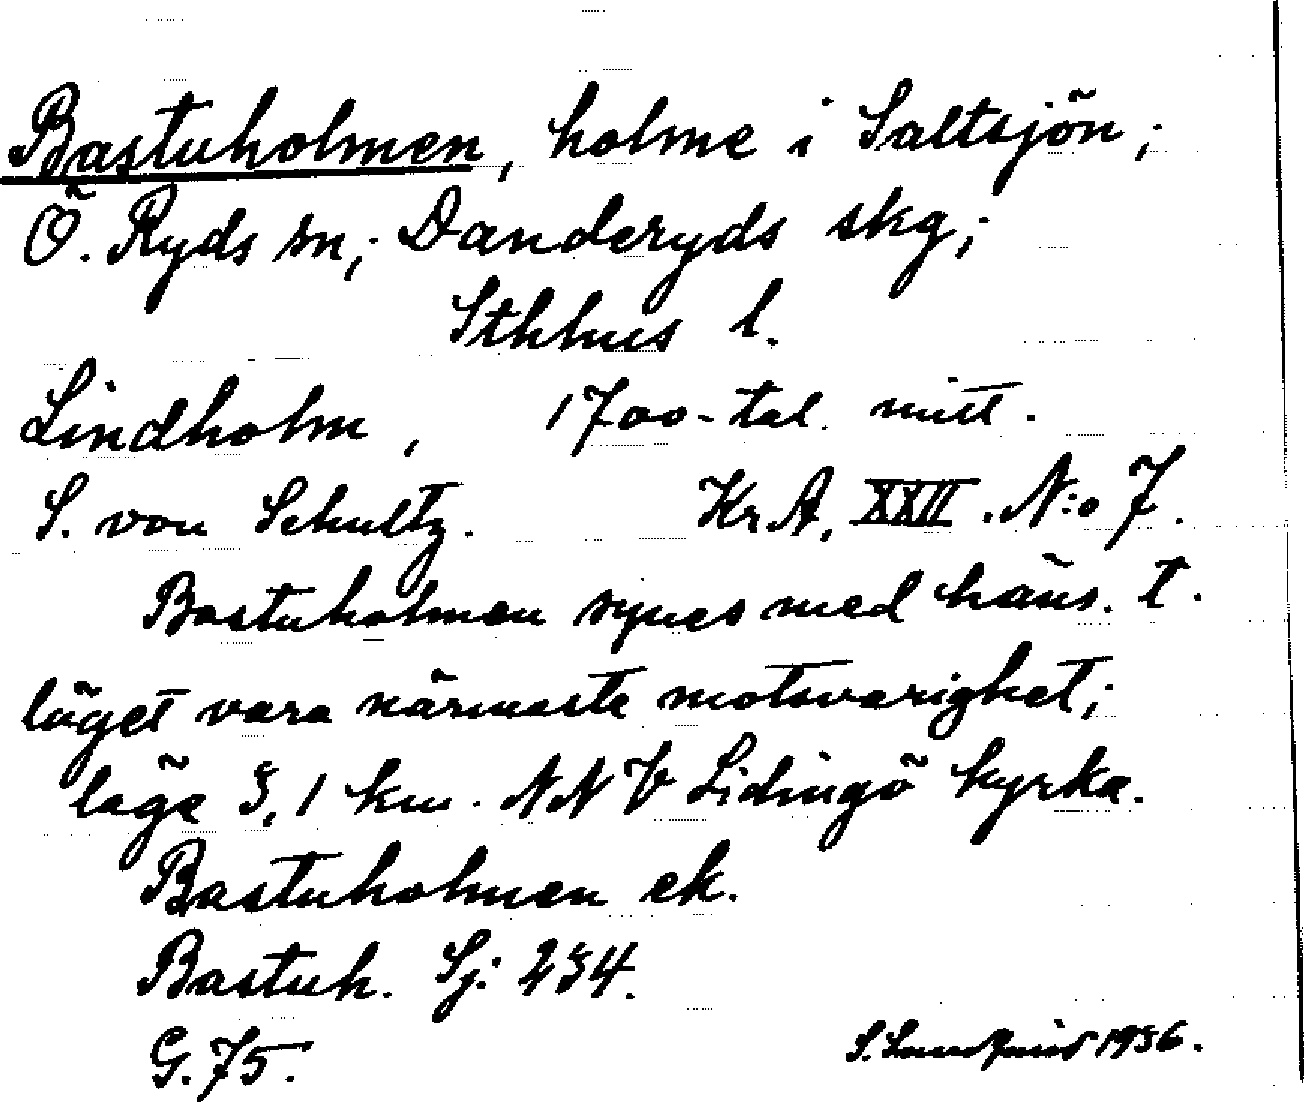 Bastuholmen, holme i Saltsjön;
Ö. Ryds sn; Danderyds skg;
Sthlms l.
Lindholm, 1700-tal. mitt.
S. von Schultz. Kr. A, XXII. N:o 7.
Bastuholmen synes med häns. t.
läget vara närmaste motsvarighet;
läge 3,1 km. NNV Lidingö kyrka.
Bastuholmen ek.
Bastuh. Sj: 234.
G. 75.
S. 1936.